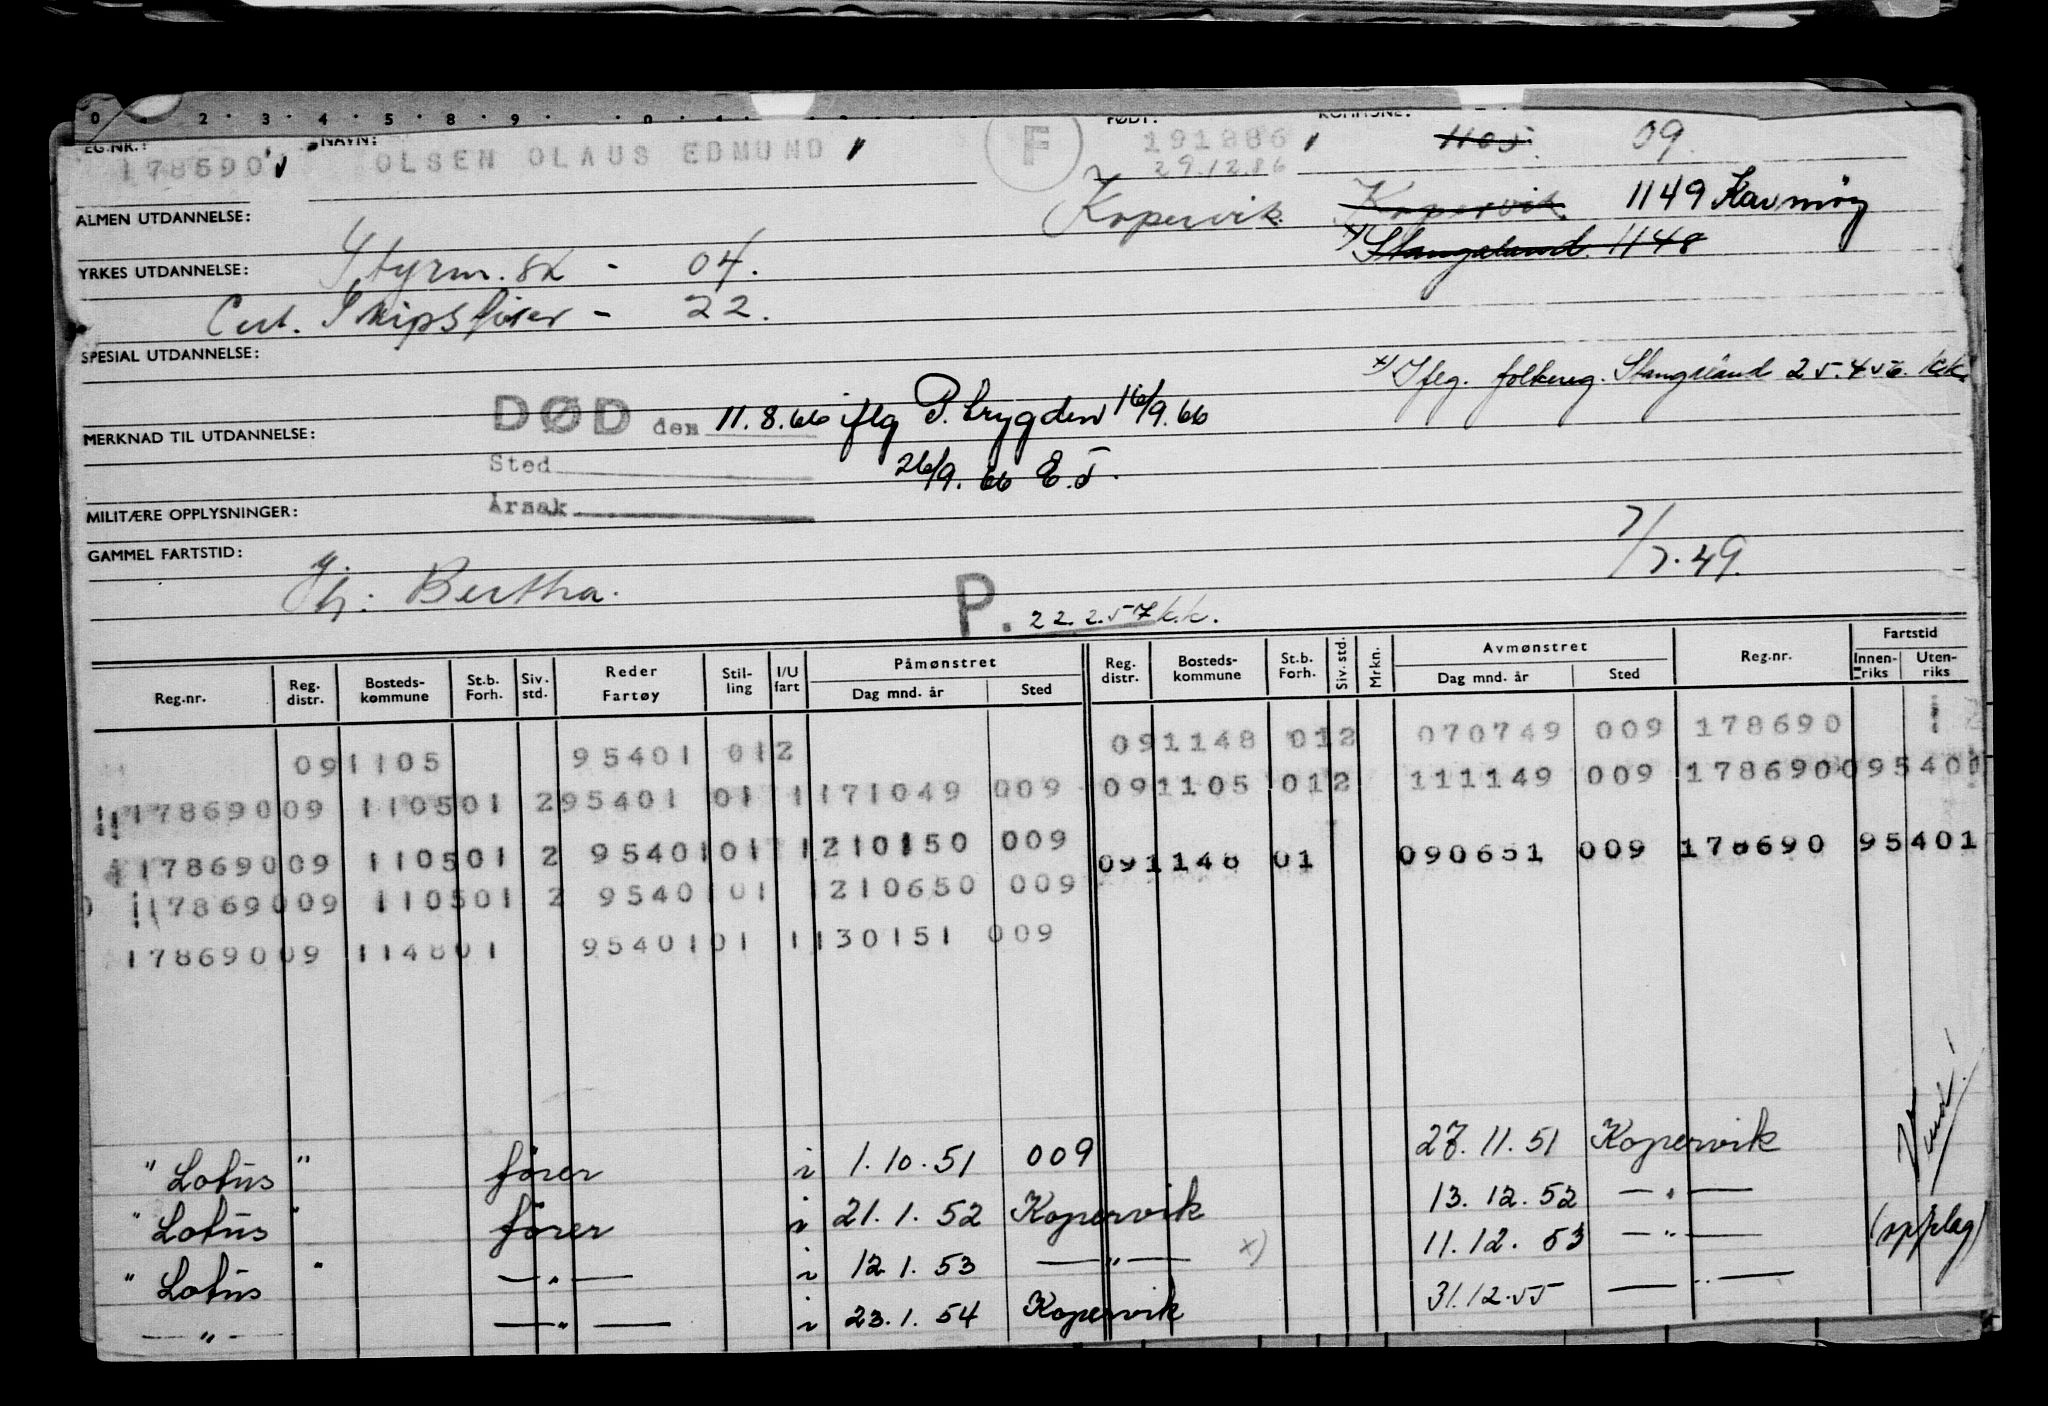 0 2 3 4 5 8 9 0
EG.NR.: NAVN: FØDT: KOMMUNE:
178690 OLSEN OLAUS EDMUND F 191886 1105 09
29.12.86
ALMEN UTDANNELSE: Kopervik Kopervik 1149 Karmøy
x) Stangeland 1148
YRKES UTDANNELSE: Styrm. sk - 04.
Cert. Skipsfører - 22.
SPESIAL UTDANNELSE:
x) Iflg. folkereg. Stangeland 25.4.56. kk
DØD den 11.8.66 iflg P. trygden 16/9.66
MERKNAD TIL UTDANNELSE:
Sted 26/9.66 E.J.
MILITÆRE OPPLYSNINGER: Årsak
GAMMEL FARTSTID: 7/7.49.
Bertha.
P. 22.2.57 k.k.
Reg.nr. Reg. distr. Bosteds-kommune St.b. Forh. Siv. std. Reder Fartøy Stil-ling I/U fart Påmønstret Dag mnd. år Sted Reg. distr. Bosteds-kommune St.b. Forh. Siv. std. Mrkn. Avmønstret Dag mnd. år Sted Reg.nr. Fartstid Innen-riks Uten-riks
091105 95401 012 091148 012 070749 009 178690
17869009 110501 295401 01 1171049 009 091105 012 111149 009 178690095401
17869009 110501 2 9540101 1210150 009 091148 01 090651 009 178690 95401
17869009 110501 2 9540101 1210650 009
17869009 114801 9540101 1130151 009
" Lotus " fører i 1.10.51 009 27.11.51 Kopervik
" Lotus " fører i 21.1.52 Kopervik 13.12.52 — " —
" Lotus " — " — i 12.1.53 — " — x) 11.12.53 — " — (opplag)
— " — — " — i 23.1.54 Kopervik 31.12.55 — " —